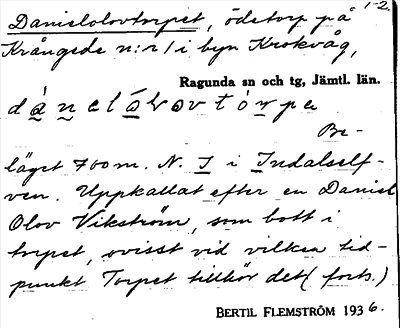 1-2.
Danielolovtorpet, ödetorp på
Krångede n:r 1 i byn Krokvåg,
Ragunda sn och tg, Jämtl. län.
Be-
läget 700 m. N. I i Indalself-
ven. Uppkallat efter en Daniel
Olov Vikström, som bott i
torpet, ovisst vid vilken tid-
punkt Torpet tillhör det (forts.)
BERTIL FLEMSTRÖM 1936.